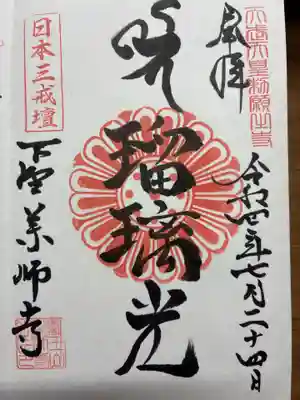 天武天皇勅願出寺
奉拝
令和四年七月二十四日
瑠璃光
日本三戒壇
下野薬師寺